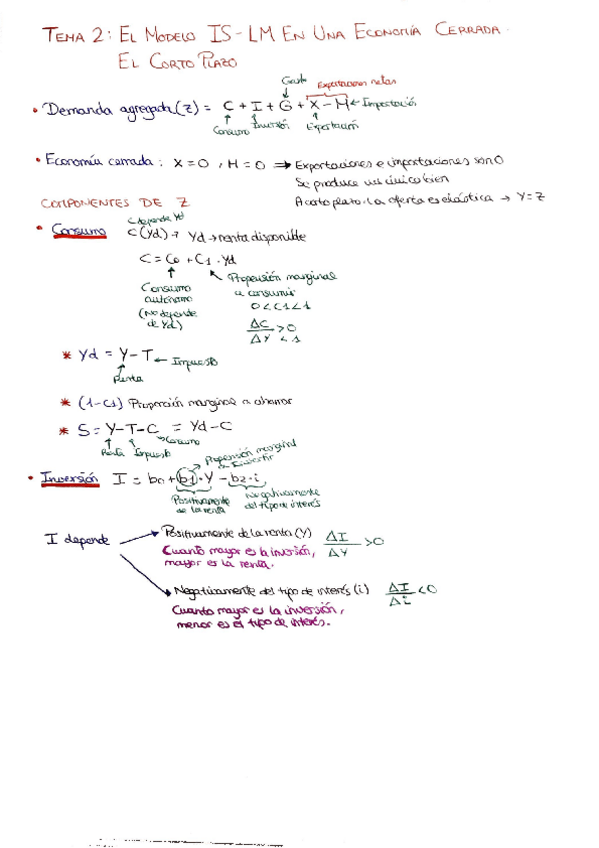 TEMA 2: EL MODELO IS-LM EN UNA ECONOMÍA CERRADA.
EL CORTO PLAZO
Gasto Exportaciones netas
• Demanda agregada (Z) = C + I + G + X - M ← Importación
Consumo Inversión Exportación
• Economía cerrada: X=0, M=0 ⇒ Exportaciones e importaciones son 0
Se produce un único bien
COMPONENTES DE Z A corto plazo la oferta es elástica → Y=Z
C depende Yd
• Consumo C(Yd) → Yd → renta disponible
C = C0 + C1 · Yd
Consumo autónomo (No depende de Yd)
Propensión marginal a consumir
0<C1<1
ΔC/ΔY >0 <1
* Yd = Y-T ← Impuesto
Renta
* (1-C1) Proporción marginal a ahorrar
* S = Y-T-C = Yd-C
Renta Impuesto Consumo
Propensión marginal a Invertir
• Inversión I = b0 + b1·Y - b2·i
Positivamente de la renta
Negativamente del tipo de interés
I depende
Positivamente de la renta (Y) ΔI/ΔY >0
Cuanto mayor es la inversión,
mayor es la renta.
Negativamente del tipo de interés (i) ΔI/Δi <0
Cuanto mayor es la inversión,
menor es el tipo de interés.